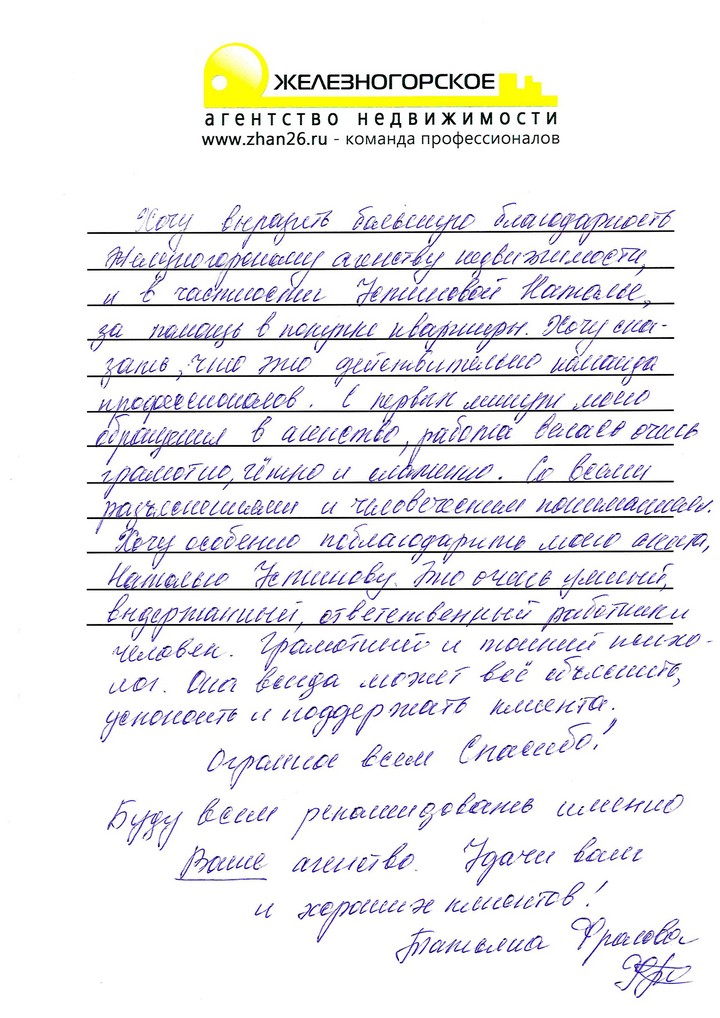 ЖЕЛЕЗНОГОРСКОЕ
агентство недвижимости
www.zhan26.ru - команда профессионалов
Хочу выразить большую благодарность
Железногорскому агенству недвижимости,
и в частности Устиновой Наталье,
за помощь в покупке квартиры. Хочу ска-
зать, что это действительно команда
профессионалов. С первых минут моего
обращения в агенство, работа велась очень
грамотно, чётко и слаженно. Со всеми
разъяснениями и человеческим пониманием.
Хочу особенно поблагодарить моего агента,
Наталью Устинову. Это очень умный,
выдержанный, ответственный работник и
человек. Грамотный и тонкий психо-
лог. Она всегда может всё объяснить,
успокоить и поддержать клиента.
Огромное всем Спасибо!
Буду всем рекомендовать именно
Ваше агенство. Удачи вам
и хороших клиентов!
Татьяна Фролова